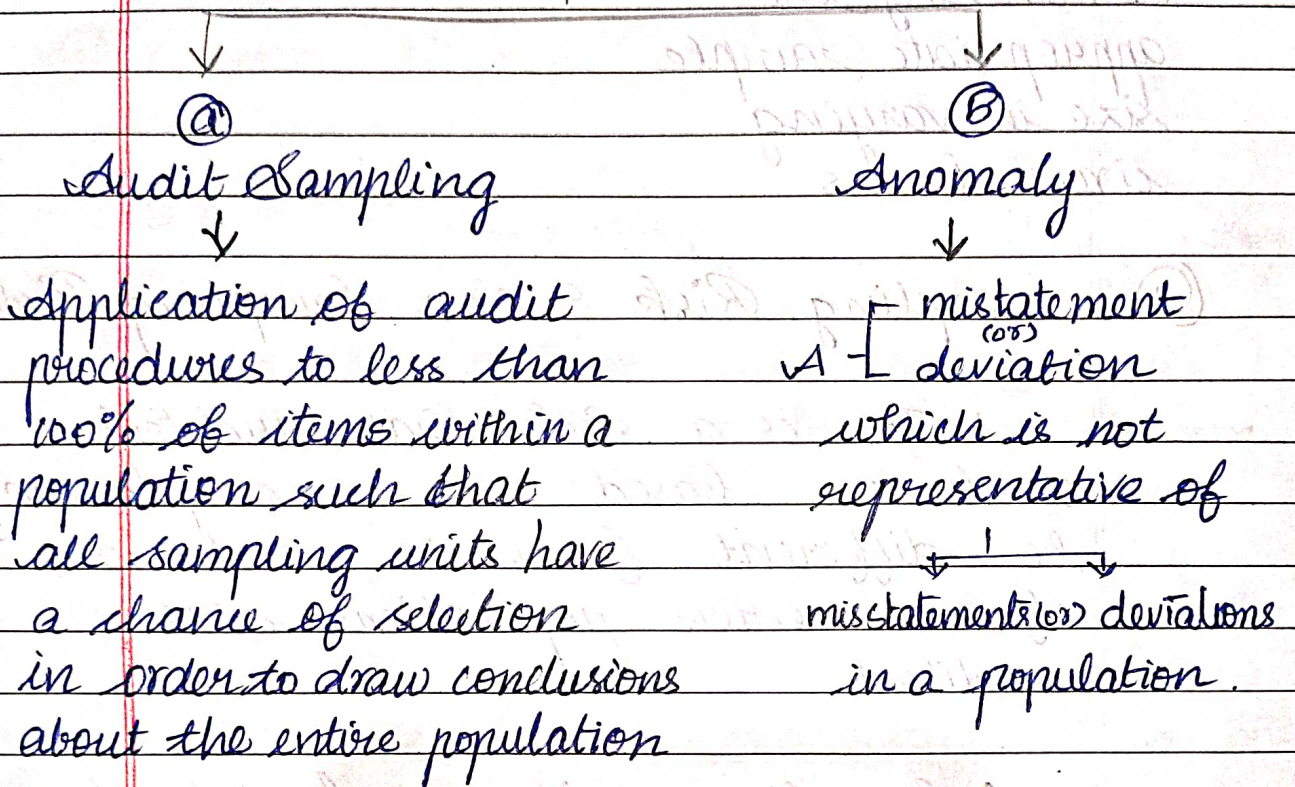 ⓐ
Audit Sampling
Application of audit
procedures to less than
100% of items within a
population such that
all sampling units have
a chance of selection
in order to draw conclusions
about the entire population
Ⓑ
Anomaly
A mistatement
(or)
deviation
which is not
representative of
misstatements (or) deviations
in a population.